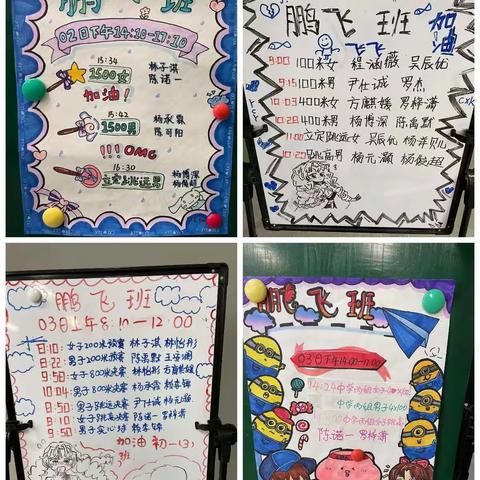 鹏飞班
02日下午14:10-17:10
15:34
1500女
林子淇
陈诺一
加油!
15:42
1500男
杨承霖
陈可阳
!!!OMG
16:30
立定跳远男
杨博深
鹏飞班
加油
飞飞
9:00 100米女 程涵薇 吴辰优
9:15 100米男 尹仕诚 罗杰
10:03 400米女 方麒媛 罗梓潇
10:28 400米男 杨博深 陈禹默
11:00 立定跳远女 吴辰优
10:20 跳高男 杨元灏
鹏飞班
03日上午8:10-12:00
8:10: 女子200米预赛 林子淇 林怡彤
8:22: 男子200米预赛 陈禹默
9:50: 女子800米决赛 林怡彤
男子800米决赛 杨承霖
8:50: 男子跳远决赛 尹仕诚 杨元灏
女子跳高决赛 陈诺一 罗梓潇
9:50: 男子实心球
加油初一(3)
班
鹏飞班
03日下午14:00-17:00
14:24中学丙组女子4×100
中学丙组男子4×100
陈诺一 罗梓潇